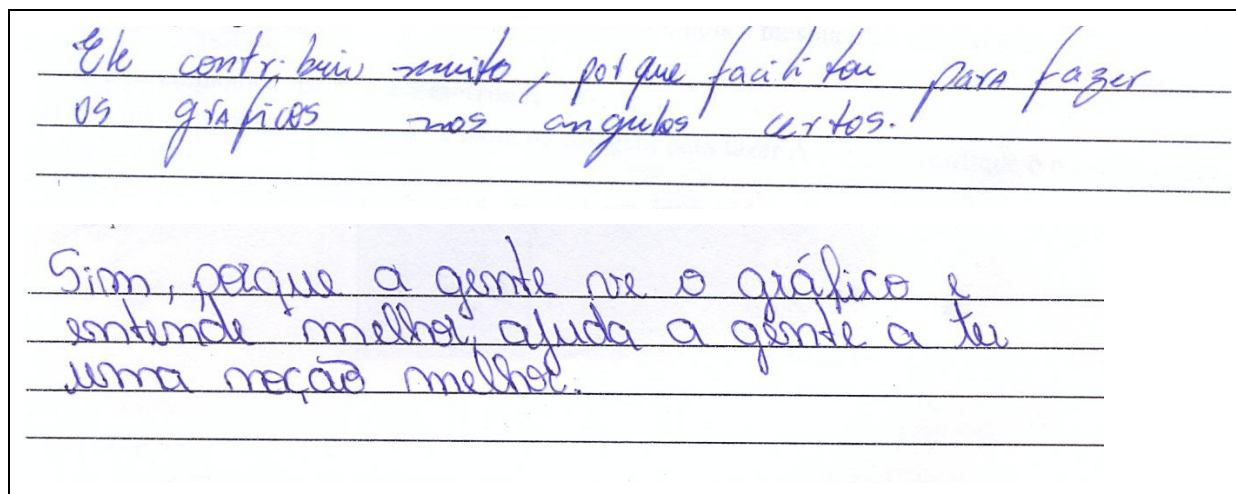 Ele contribuiu muito, porque facilitou para fazer
os gráficos nos angulos certos.
Sim, porque a gente ve o gráfico e
entende melhor, ajuda a gente a ter
uma noção melhor.